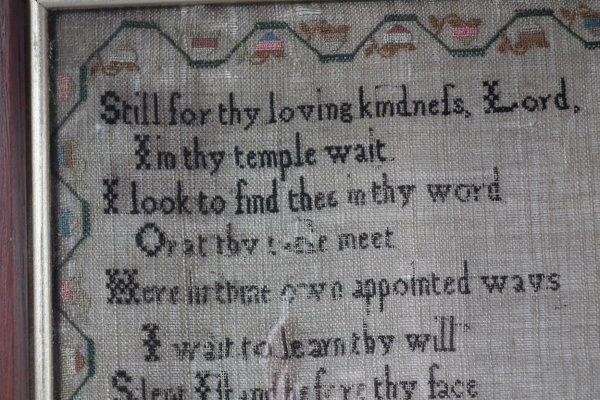 Still for thy loving kindneſs, Lord,
I in thy temple wait
I look to find thee in thy word
Or at thy table meet
Here in thine own appointed ways
I wait to learn thy will
Silent I stand before thy face